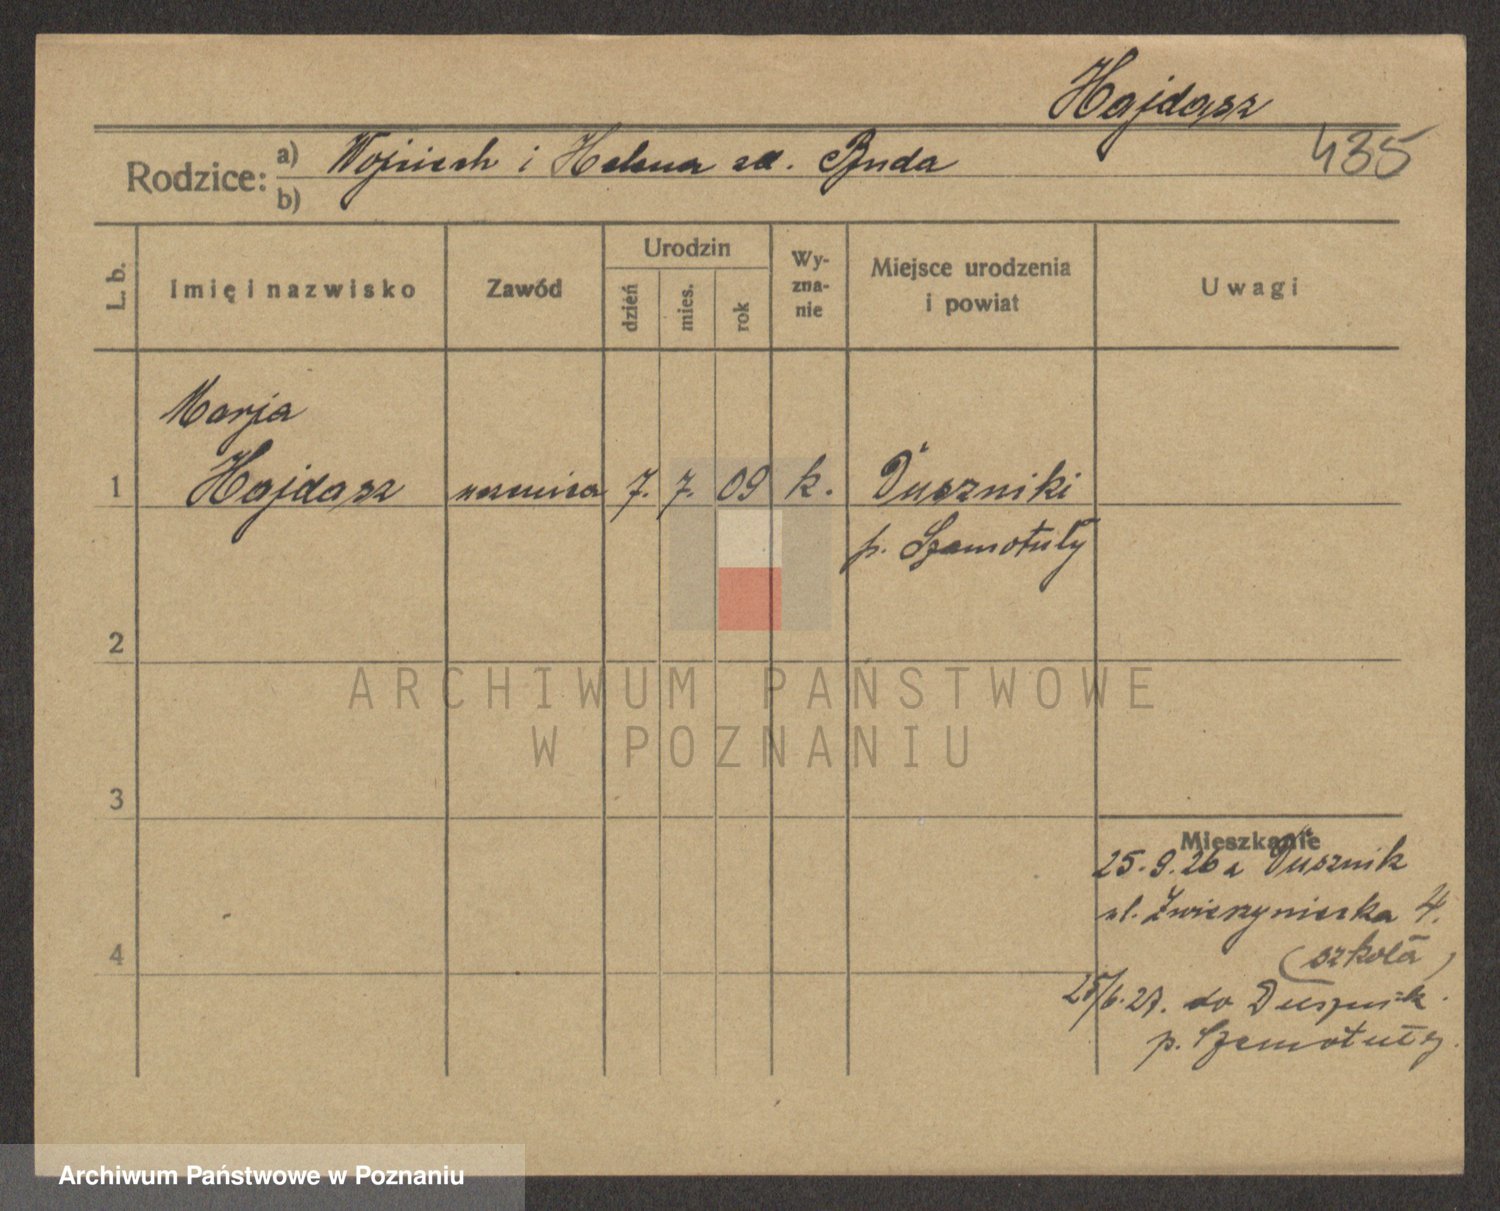 Hajdasz
435
Rodzice: a) Wojciech i Helena zd. Buda
b)
L. b.
Imię i nazwisko
Zawód
Urodzin
dzień
mies.
rok
Wy-
zna-
nie
Miejsce urodzenia
i powiat
Uwagi
Marja
1 Hajdasz uczenica 7. 7. 09 k. Duszniki
p. Szamotuły
2
3
4
Mieszkanie
25.9.26 z Dusznik
ul. Zwierzyniecka 4.
(szkoła)
25/6.27. do Dusznik.
p. Szamotuły.
ARCHIWUM PAŃSTWOWE
W POZNANIU
Archiwum Państwowe w Poznaniu